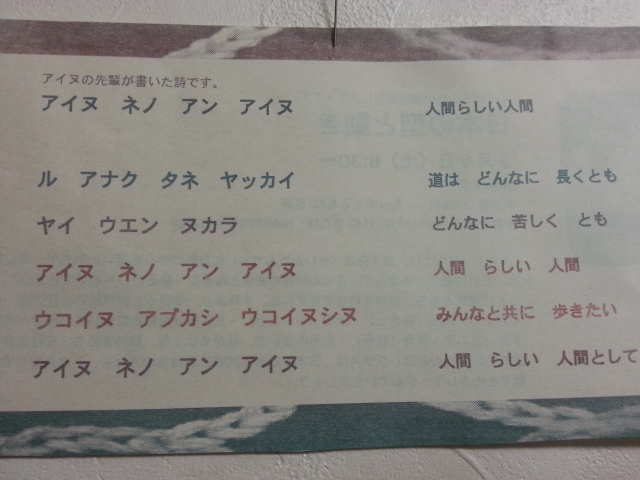 アイヌの先輩が書いた詩です。
アイヌ ネノ アン アイヌ 人間らしい人間
ル アナク タネ ヤッカイ 道は どんなに 長くとも
ヤイ ウエン ヌカラ どんなに 苦しく とも
アイヌ ネノ アン アイヌ 人間 らしい 人間
ウコイヌ アプカシ ウコイヌシヌ みんなと共に 歩きたい
アイヌ ネノ アン アイヌ 人間 らしい 人間として